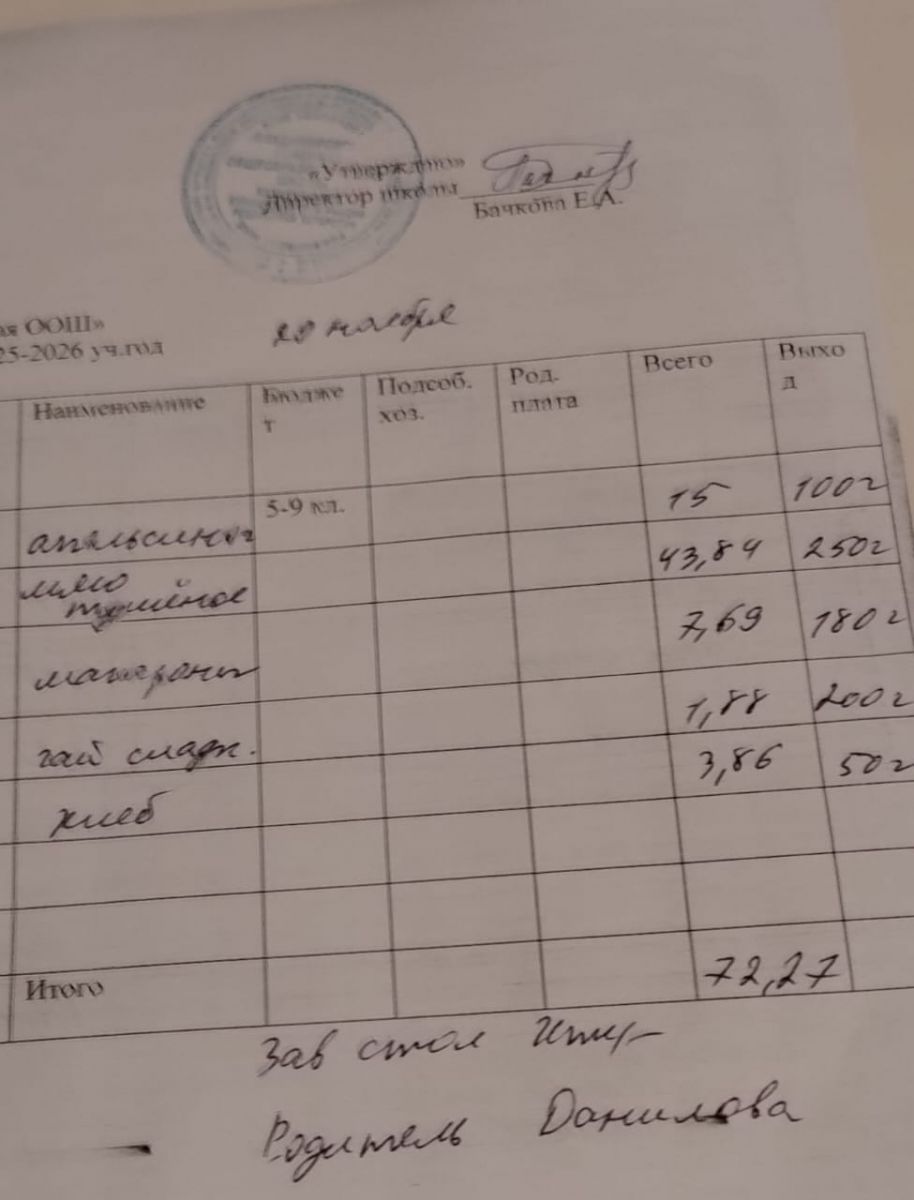 «Утверждено»
Директор школы
Бачкова Е.А.
ая ООШ»
25-2026 уч.год
ноября
Наименование Бюджет Подсоб. хоз. Род. плата Всего Выход
апельсины 5-9 кл. 15 100г
мясо тушёное 43,84 250г
макароны 7,69 180г
чай сладк. 1,88 200г
хлеб 3,86 50г
Итого 72,27
Зав стол
Родитель Данилова